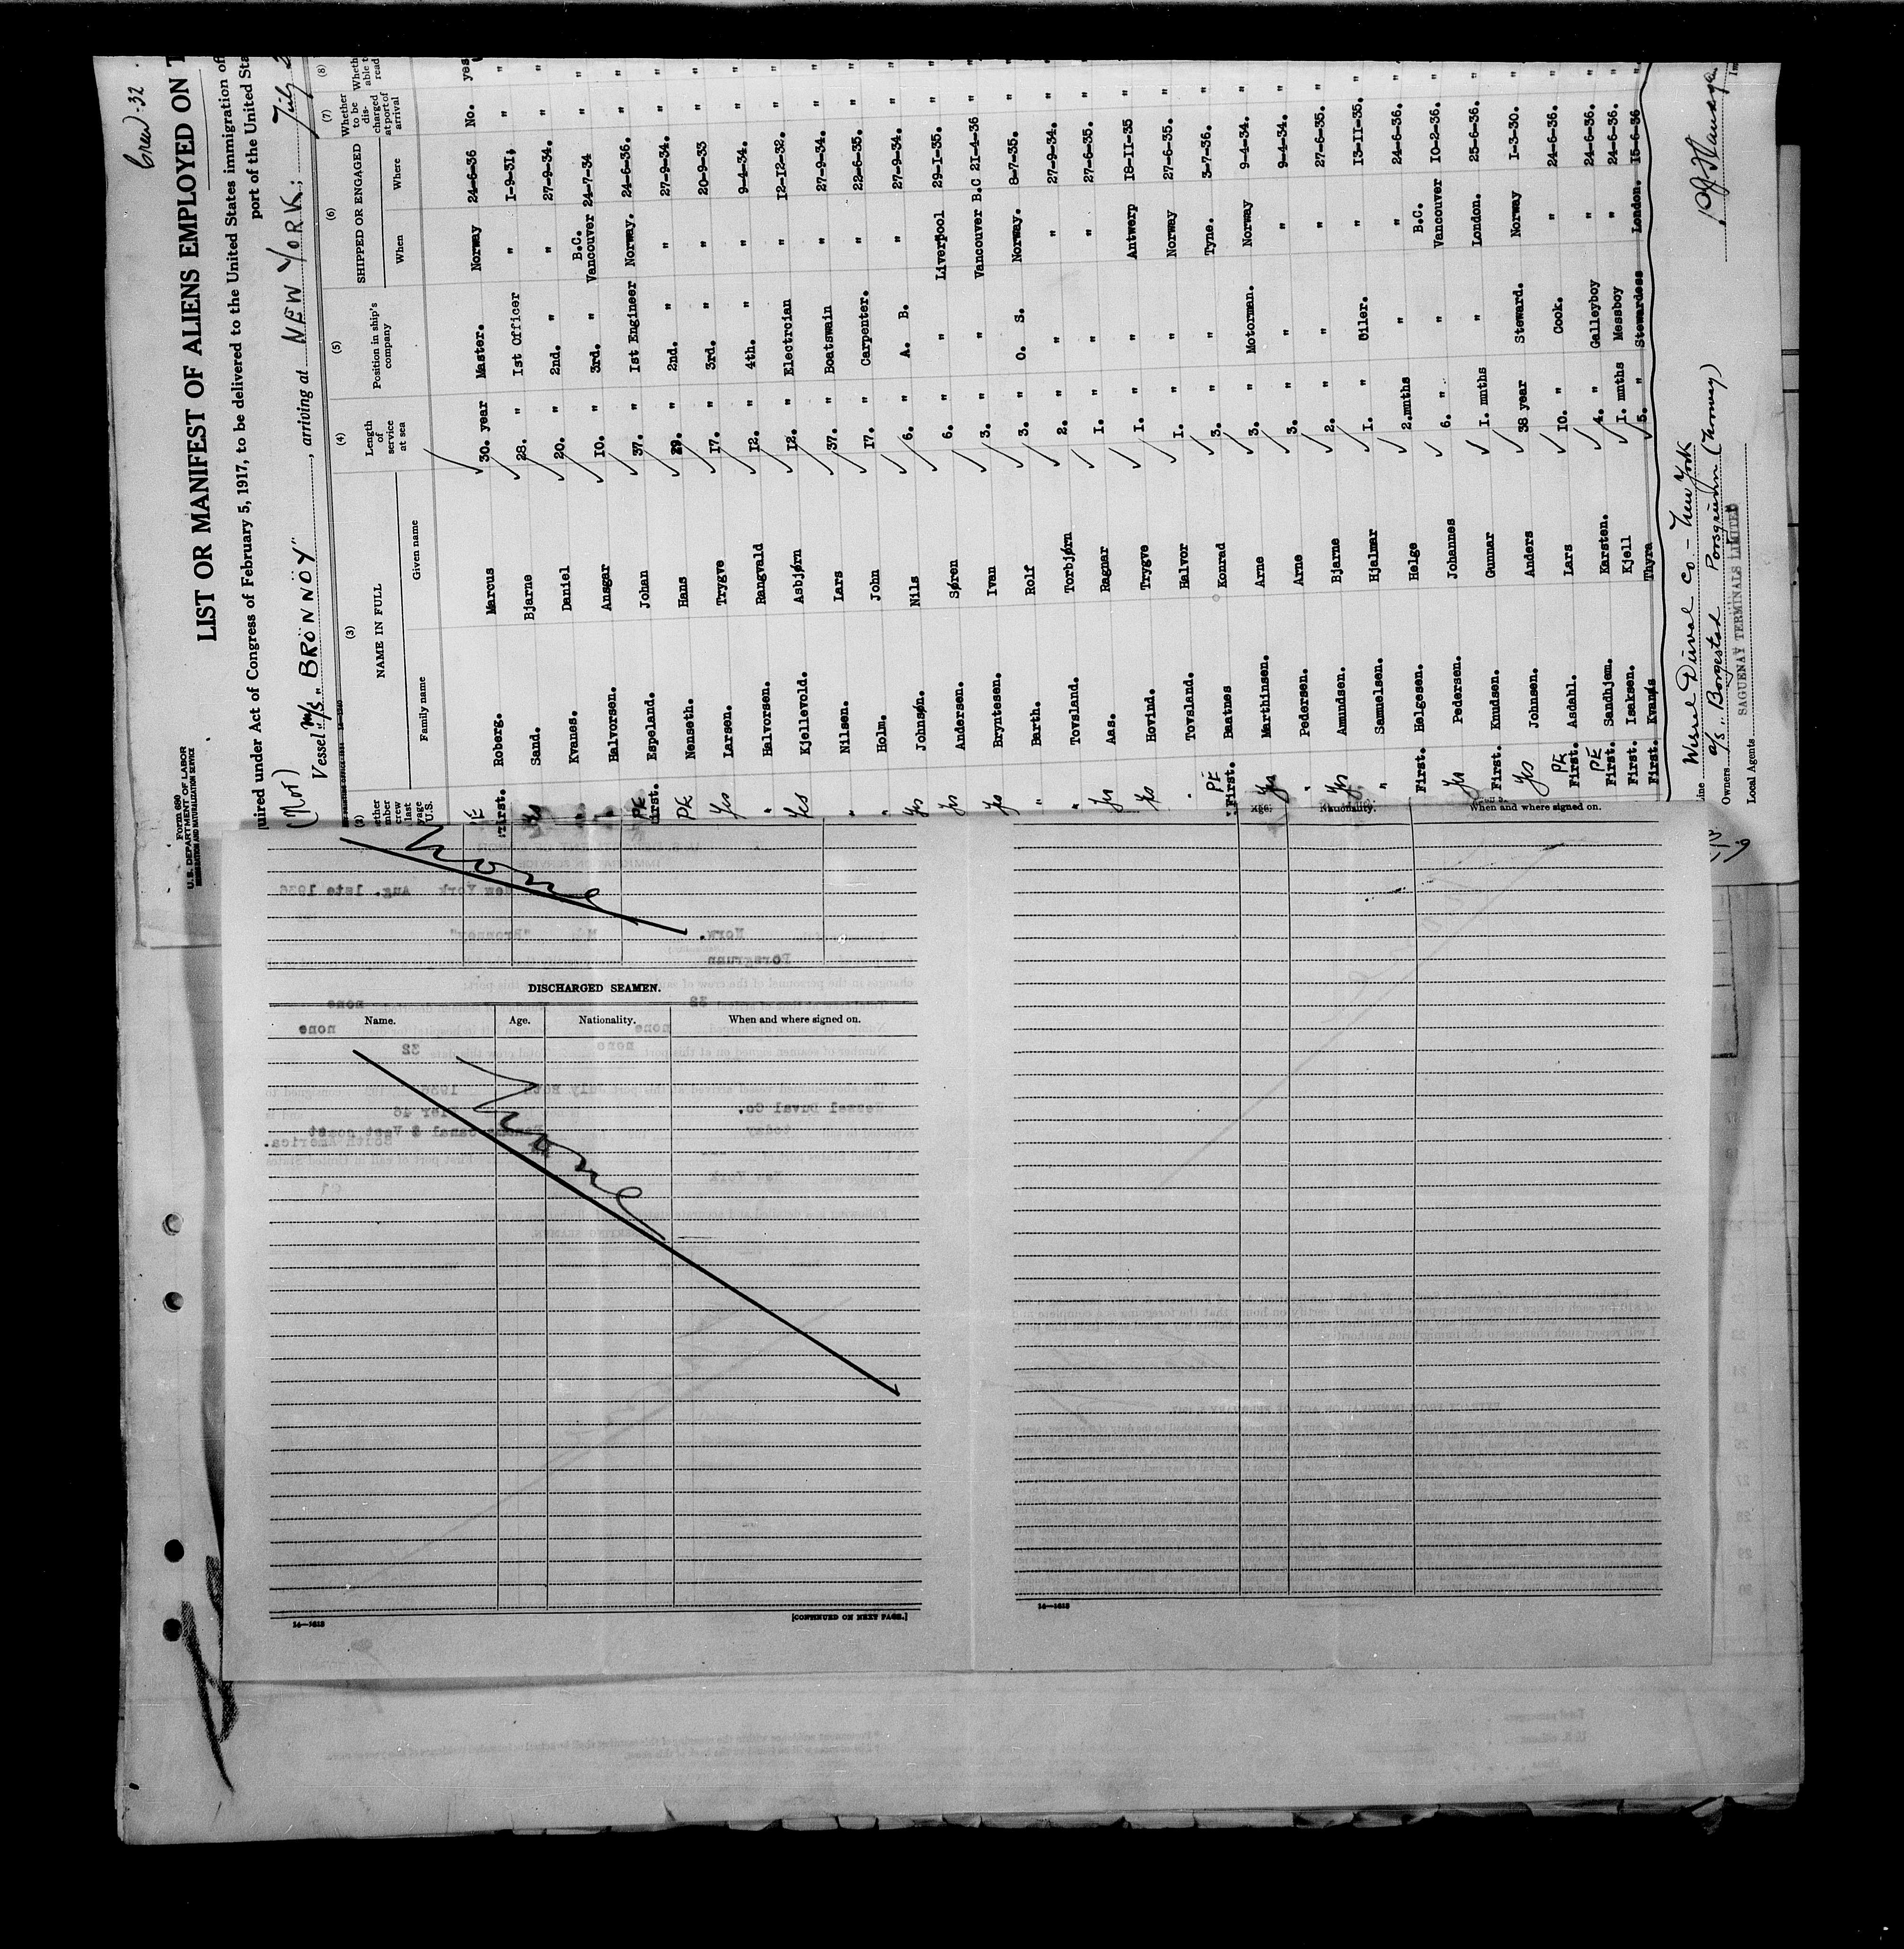 Crew - 32
Form 680
U.S. DEPARTMENT OF LABOR
IMMIGRATION AND NATURALIZATION SERVICE
LIST OR MANIFEST OF ALIENS EMPLOYED ON T
quired under Act of Congress of February 5, 1917, to be delivered to the United States immigration of
port of the United Sta
(Mot)
Vessel M/S "BRÖNNÖY", arriving at NEW YORK; July 2
(3) NAME IN FULL
Family name Given name
(4) Length of service at sea
(5) Position in ship's company
(6) SHIPPED OR ENGAGED
When Where
(7) Whether to be discharged at port of arrival
(8) Wheth able t read
PE First. Roberg. Marcus 30. year Master. Norway 24-6-36 No. yes
Yes Sand. Bjarne 28. " 1st Officer " 1-9-31. " "
Kvanes. Daniel 20. " 2nd. " " 27-9-34. " "
Halvorsen. Ansgar 10. " 3rd. " B.C. Vancouver 24-7-34 " "
PE First. Espeland. Johan 37. " 1st Engineer Norway. 24-6-36. " "
PE Nenseth. Hans 29. " 2nd. " " 27-9-34. " "
Yes Larsen. Trygve 17. " 3rd. " " 20-9-33 " "
" Halvorsen. Rangvald 12. " 4th. " " 9-4-34. " "
Yes Kjellevold. Asbjørn 12. " Electrcian " 12-12-32. " "
" Nilsen. Lars 37. " Boatswain " 27-9-34. " "
" Holm. John 17. " Carpenter. " 22-6-35. " "
Yes Johnsøn. Nils 6. " A. B. " 27-9-34. " "
Yes Andersen. Søren 6. " " Liverpool 29-1-35. " "
Yes Bryntesen. Ivan 3. " " Vancouver B.C 21-4-36 " "
" Barth. Rolf 3. " O. S. Norway. 8-7-35. " "
" Tovsland. Torbjørn 2. " " " 27-9-34. " "
Yes Aas. Ragnar 1. " " " 27-6-35. " "
Yes Hovind. Trygve 1. " " Antwerp 18-11-35 " "
" Tovsland. Halvor 1. " " Norway 27-6-35. " "
PE First. Baatnes Konrad 3. " " Tyne. 3-7-36. " "
Yes Marthinsen. Arne 3. " Motorman. Norway 9-4-34. " "
Pedersen. Arne 3. " " " 9-4-34. " "
Yes Amundsen. Bjarne 2. " " " 27-6-35. " "
" Samuelsen. Hjalmar 1. " Oiler. " 13-11-35. " "
First. Helgesen. Helge 2.mnths " " 24-6-36. " "
Yes Pedersen. Johannes 6. " " B.C. Vancouver 10-2-36. " "
First. Knudsen. Gunnar 1. mnths " London. 25-6-36. " "
Yes Johnsen. Anders 38 year Steward. Norway 1-3-30. " "
PE First. Asdahl. Lars 10. " Cook. " 24-6-36. " "
PE First. Sandhjem. Karsten. 4. " Galleyboy " 24-6-36. " "
First. Isaksen. Kjell 1. mnths Messboy " 24-6-36. " "
First. Kvanøs Thyra 5. " Stewardess London. 15-6-36 " "
Line Wessel Duval Co - New York
Owners A/S "Borgestad Porsgrunn (Norway)
Local Agents SAGUENAY TERMINALS LIMITED
None
DISCHARGED SEAMEN.
Name. Age. Nationality. When and where signed on.
None
14—1618
[CONTINUED ON NEXT PAGE.]
Age. Nationality. When and where signed on.
14—1618